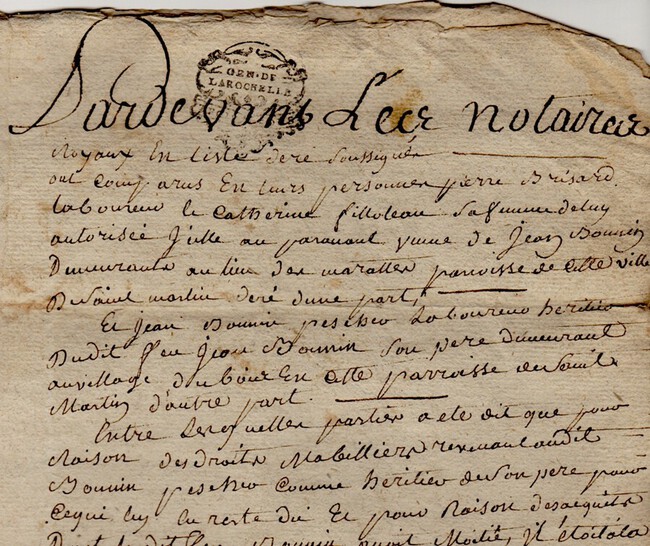 GEN. DE
LAROCHELLE
Pardevant Les notaires
Royaux En Liste de ré Soussignés
ont comparus En Leurs personnes pierre Brisard
Laboureur & Catherine filloleau Sa femme de luy
autorisée Jcelle au paravant veuve de Jean Bounin
Demeurants au lieu des maratter parroisse de cette ville
De Saint martin de ré d'une part,
Et Jean Bounin pescheur Laboureur heritier
Dudit feu Jean Bounin Son pere Demeurant
au village du bour En cette parroisse de Saint
Martin d'autre part.
Entre Lesquelles parties a eté dit que pour
Raison des droits Mobilliers revenant audit
Bounin pescheur comme heritier de Son pere pour
ce qui luy En reste dû Et pour Raison des acquits
Dont ledit feu Bounin avoit Moitié, Jl étoit